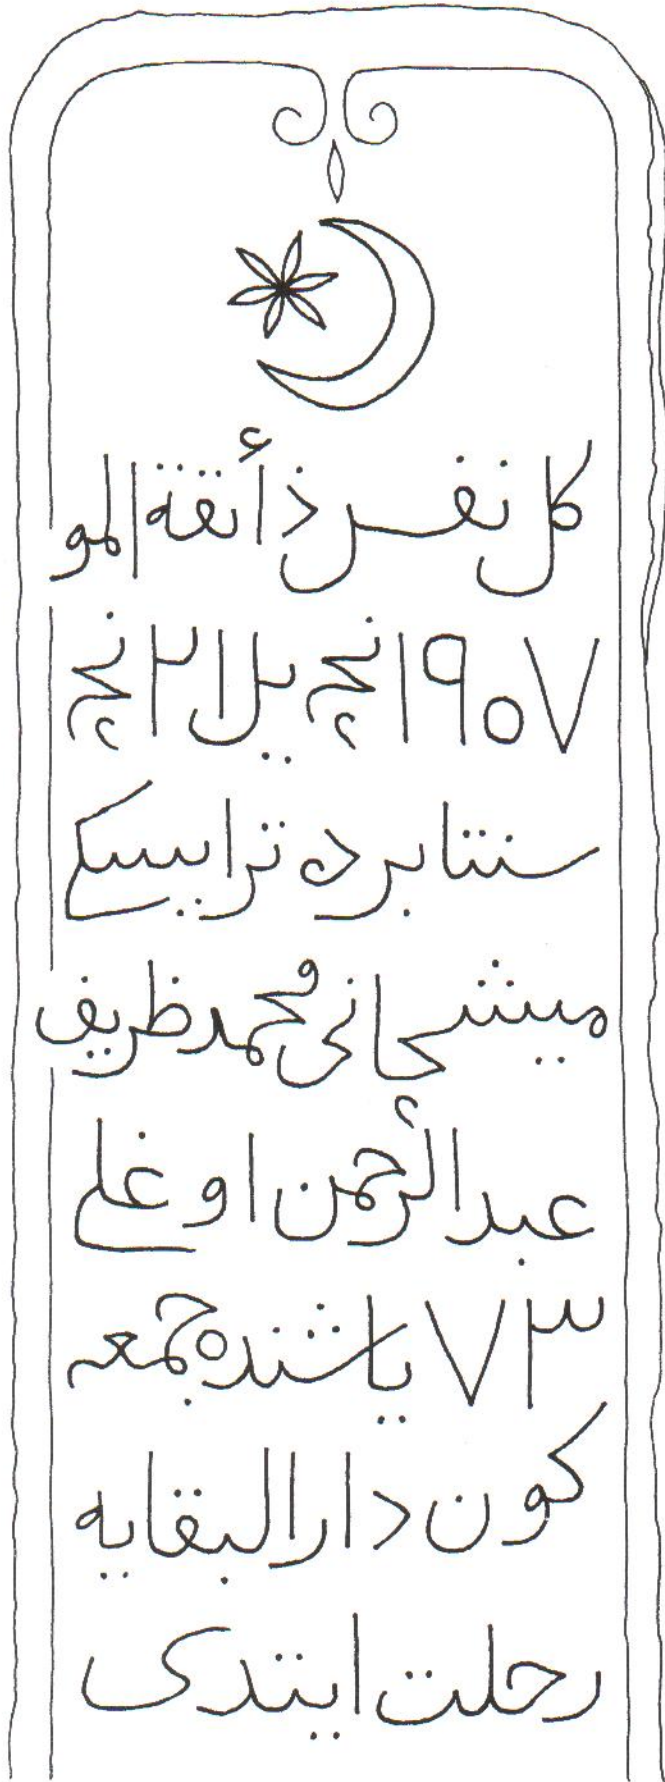 كل نفس ذأىقة المو
١٩٥٧ نچ يل ٢١ نچ
سنتابرده ترايسكے
ميشحانى محمد ظريف
عبدالرحمن اوغلے
٧٣ ياشنده جمعه
كون دارالبقايه
رحلت ايتدى